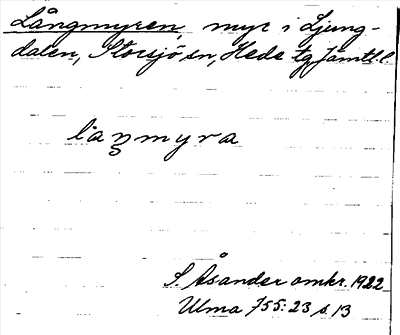 Långmyren, myr i Ljung-
dalen, Storsjö sn, Hede tg Jämtl. l.
låŋmyra
S. Åsander omkr. 1922
Ulma 755:23 s. 13